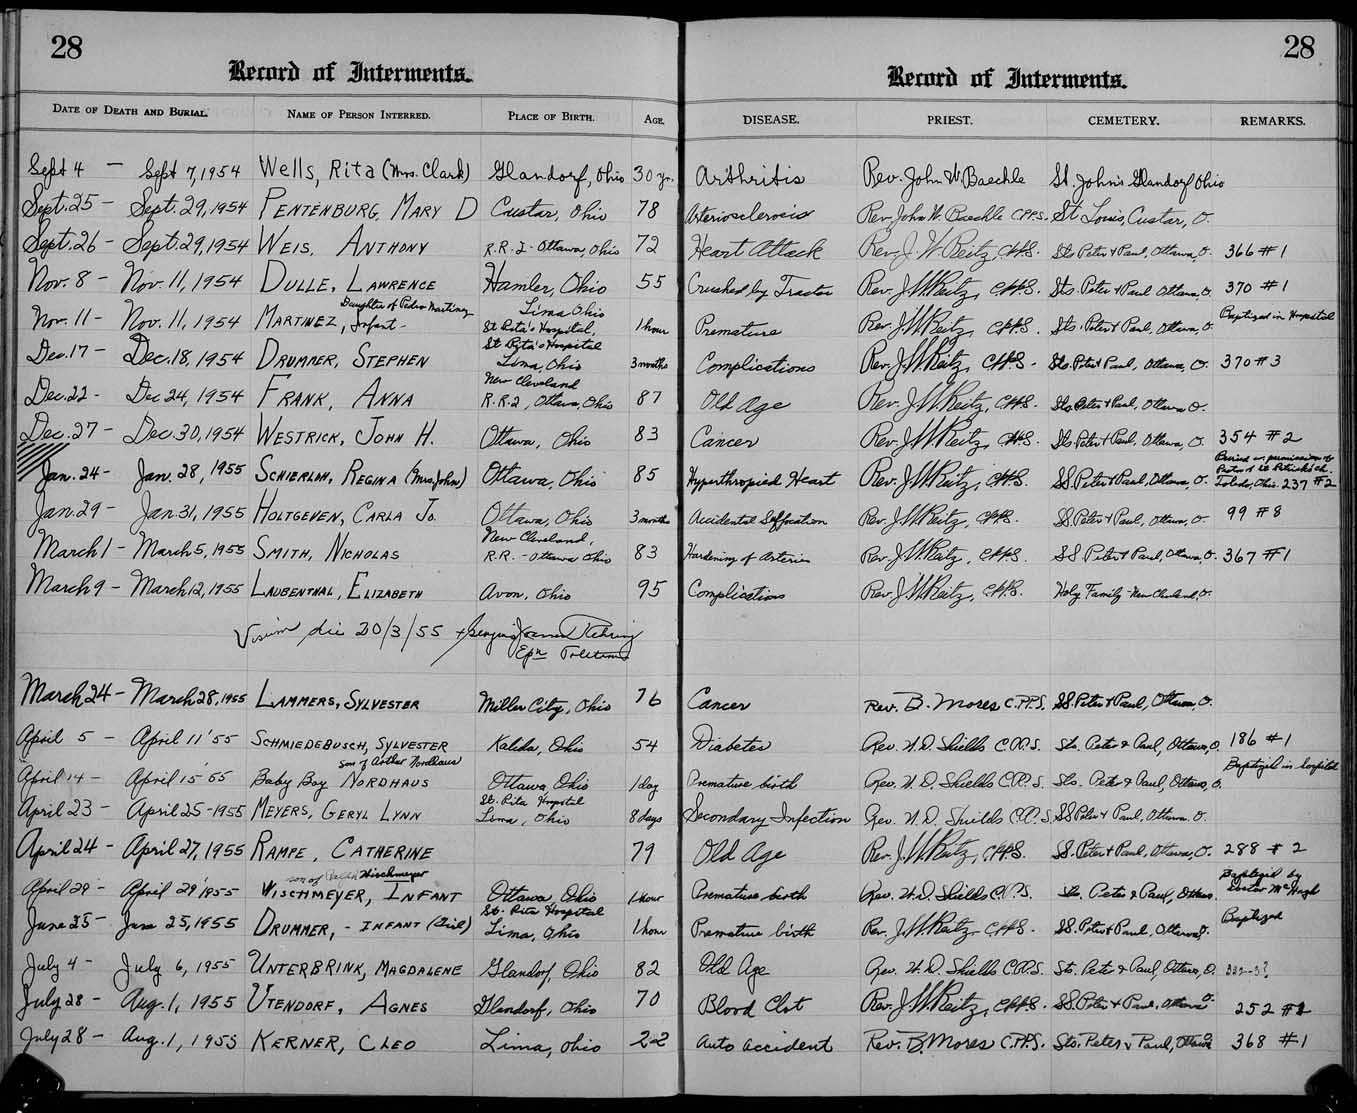 28
Record of Interments.
28
Record of Interments.
DATE OF DEATH AND BURIAL. NAME OF PERSON INTERRED. PLACE OF BIRTH. AGE. DISEASE. PRIEST. CEMETERY. REMARKS.
Sept 4 — Sept 7, 1954 Wells, Rita (Mrs. Clark) Glandorf, Ohio 30 yr. Arthritis Rev. John W. Baechle St. John's Glandorf Ohio
Sept. 25 — Sept. 29, 1954 PENTENBURG, MARY D Custar, Ohio 78 Arteriosclerosis Rev. John W. Baechle CPP.S. St Louis, Custar, O.
Sept. 26 - Sept. 29, 1954 WEIS, ANTHONY R.R. 2 - Ottawa, Ohio 72 Heart Attack Rev. J. W. Reitz, C.PP.S. Sts Peter & Paul, Ottawa, O. 366 #1
Nov. 8 - Nov. 11, 1954 DULLE, LAWRENCE Hamler, Ohio 55 Crushed by Tractor Rev. J. W. Reitz, C.PP.S. Sts. Peter & Paul Ottawa, O. 370 #1
Daughter of Pedro Martinez Lima Ohio Baptized in Hospital
Nov. 11 - Nov. 11, 1954 MARTINEZ, Infant - St Rita's Hospital, 1 hour Premature Rev. J. W. Reitz, C.PP.S. Sts. Peter & Paul, Ottawa, O.
St Rita's Hospital
Dec. 17 - Dec. 18, 1954 DRUMMER, STEPHEN Lima, Ohio 3 months Complications Rev. J. W. Reitz, C.PP.S - Sts. Peter & Paul, Ottawa, O. 370 #3
New Cleveland
Dec. 22 - Dec 24, 1954 FRANK, ANNA R.R. 2, Ottawa, Ohio 87 Old Age Rev. J. W. Reitz, C.PP.S. Sts Peter & Paul, Ottawa O.
Dec. 27 - Dec. 30, 1954 WESTRICK, JOHN H. Ottawa, Ohio 83 Cancer Rev. J. W. Reitz, C.PP.S. Sts Peter & Paul, Ottawa, O. 354 #2
Buried w. permission of
Pastor of St Patrick's Ch.
Jan. 24 - Jan. 28, 1955 SCHIERLOH, REGINA (Mrs. John) Ottawa, Ohio 85 Hyperthropied Heart Rev. J. W. Reitz, C.PP.S. SS. Peter & Paul, Ottawa, O. Toledo, Ohio. 237 #2
Jan. 29 - Jan. 31, 1955 HOLTGEVEN, CARLA JO. Ottawa, Ohio 3 months Accidental Suffocation Rev. J. W. Reitz, C.PP.S. SS. Peter & Paul, Ottawa, O. 99 #8
New Cleveland,
March 1 - March 5, 1955 SMITH, NICHOLAS R.R. - Ottawa Ohio 83 Hardening of Arteries Rev. J. W. Reitz, C.PP.S. SS Peter & Paul, Ottawa, O. 367 #1
March 9 - March 12, 1955 LAUBENTHAL, ELIZABETH Avon, Ohio 95 Complications Rev. J. W. Reitz, C.PP.S. Holy Family - New Cleveland, O.
die 30/3/55 +
March 24 - March 28, 1955 LAMMERS, SYLVESTER Miller City, Ohio 76 Cancer Rev. B. Mores C.PP.S. SS. Peter & Paul, Ottawa, O.
April 5 - April 11 '55 SCHMIEDEBUSCH, SYLVESTER Kalida, Ohio 54 Diabetes Rev. W. D. Shields C.PP.S. Sts. Peter & Paul, Ottawa, O. 186 #1
son of Arthur Nordhaus Baptized in hospital
April 14 - April 15 '55 Baby Boy NORDHAUS Ottawa, Ohio 1 day Premature birth Rev. W. D. Shields C.PP.S. Sts. Peter & Paul, Ottawa, O.
St. Rita Hospital
April 23 - April 25 - 1955 MEYERS, GERYL LYNN Lima, Ohio 8 days Secondary Infection Rev. W. D. Shields C.PP.S. SS Peter & Paul, Ottawa. O.
April 24 - April 27, 1955 RAMPE, CATHERINE 79 Old Age Rev. J. W. Reitz, C.PP.S. SS. Peter & Paul, Ottawa, O. 288 #2
son of Ralph Wischmeyer Baptized by
April 29 - April 29 1955 WISCHMEYER, INFANT Ottawa, Ohio 1 hour Premature birth Rev. W. D. Shields C.PP.S. Sts. Peter & Paul, Ottawa. Doctor McHugh
St. Rita Hospital Baptized
June 25 - June 25, 1955 DRUMMER, - INFANT (Girl) Lima, Ohio 1 hour Premature birth Rev. J. W. Reitz, C.PP.S. SS. Peter & Paul, Ottawa, O.
July 4 - July 6, 1955 UNTERBRINK, MAGDALENE Glandorf, Ohio 82 Old Age Rev. W. D. Shields C.PP.S. Sts. Peter & Paul, Ottawa, O.
July 28 - Aug. 1, 1955 UTENDORF, AGNES Glandorf, Ohio 70 Blood Clot Rev. J. W. Reitz, C.PP.S. SS. Peter & Paul, Ottawa O. 252 #2
July 28 - Aug. 1, 1955 KERNER, CLEO Lima, Ohio 22 Auto accident Rev. B. Mores C.PP.S. Sts. Peter & Paul, Ottawa O. 368 #1